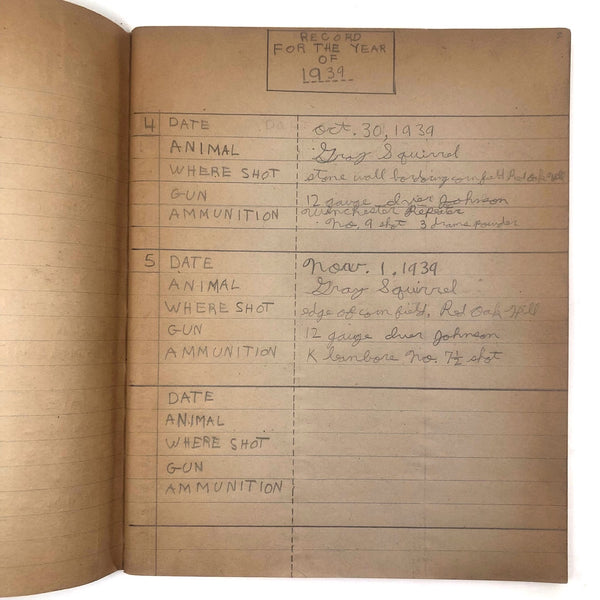 RECORD
FOR THE YEAR
OF
1939
4 DATE oct. 30, 1939
ANIMAL Gray Squirrel
WHERE SHOT stone wall cornfield Red Oak Hill
GUN 12 gauge Iver Johnson
AMMUNITION Winchester Repeater
No. 9 shot 3 drams powder
5 DATE Nov. 1, 1939
ANIMAL Gray Squirrel
WHERE SHOT edge of corn field, Red Oak Hill
GUN 12 gauge Iver Johnson
AMMUNITION Kleanbore No. 7½ shot
DATE
ANIMAL
WHERE SHOT
GUN
AMMUNITION